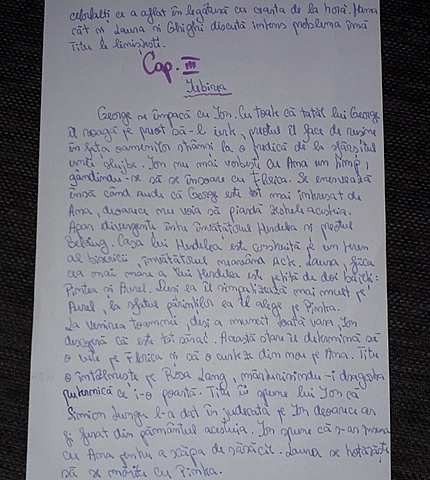 celorlalți ce a aflat în legătură cu cearta de la horă. Mama
cât și Laura și Ghighi discută intens problema însă
Titu le liniștește.
Cap. III
Iubirea
George se împacă cu Ion. Cu toate că tatăl lui George
îl roagă pe preot să-l ierte, preotul îl face de rușine
în fața oamenilor strânși la o predică de la sfârșitul
unei slujbe. Ion nu mai vorbește cu Ana un timp,
gândindu-se să se însoare cu Florica. Se enervează
însă când aude că George este tot mai interesat de
Ana, deoarece nu voia să piardă zestrea acesteia.
Apar divergențe între învățătorul Herdelea și preotul
Belciug. Casa lui Herdelea este construită pe un teren
al bisericii, învățătorul neavând acte. Laura, fiica
cea mai mare a lui Herdelea este pețită de doi băieți:
Pintea și Aurel. Deși ea îl simpatizează mai mult pe
Aurel, la sfatul părinților ea îl alege pe Pintea.
La venirea toamnei, deși a muncit toată vara, Ion
descoperă că este tot sărac. Această stare îl determină să
o uite pe Florica și să o curteze din nou pe Ana. Titu
o întâlnește pe Rosa Lang, mărturisindu-i dragostea
puternică ce i-o poartă. Titu îi spune lui Ion că
Simion Lungu l-a dat în judecată pe Ion deoarece ar
fi furat din pământul acestuia. Ion spune că s-ar însura
cu Ana pentru a scăpa de sărăcie. Laura se hotărăște
să se mărite cu Pintea.